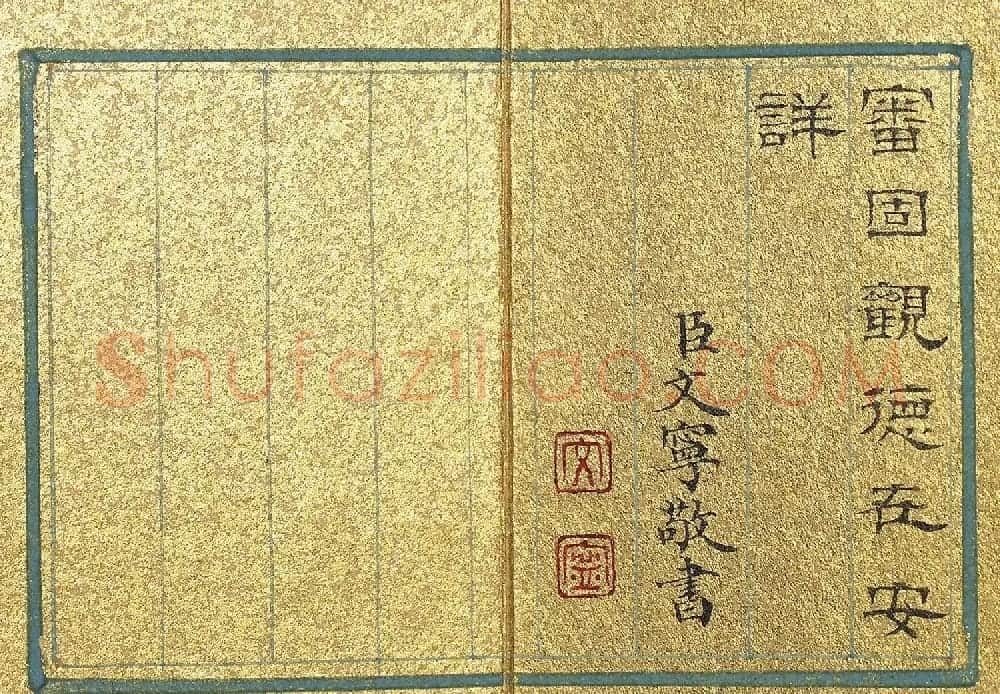 審固觀德在安
詳
臣文寧敬書
文
寧
Shufaziliao.COM